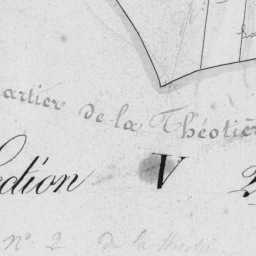 artier de la Théotièr
ection V
n° 2 de la